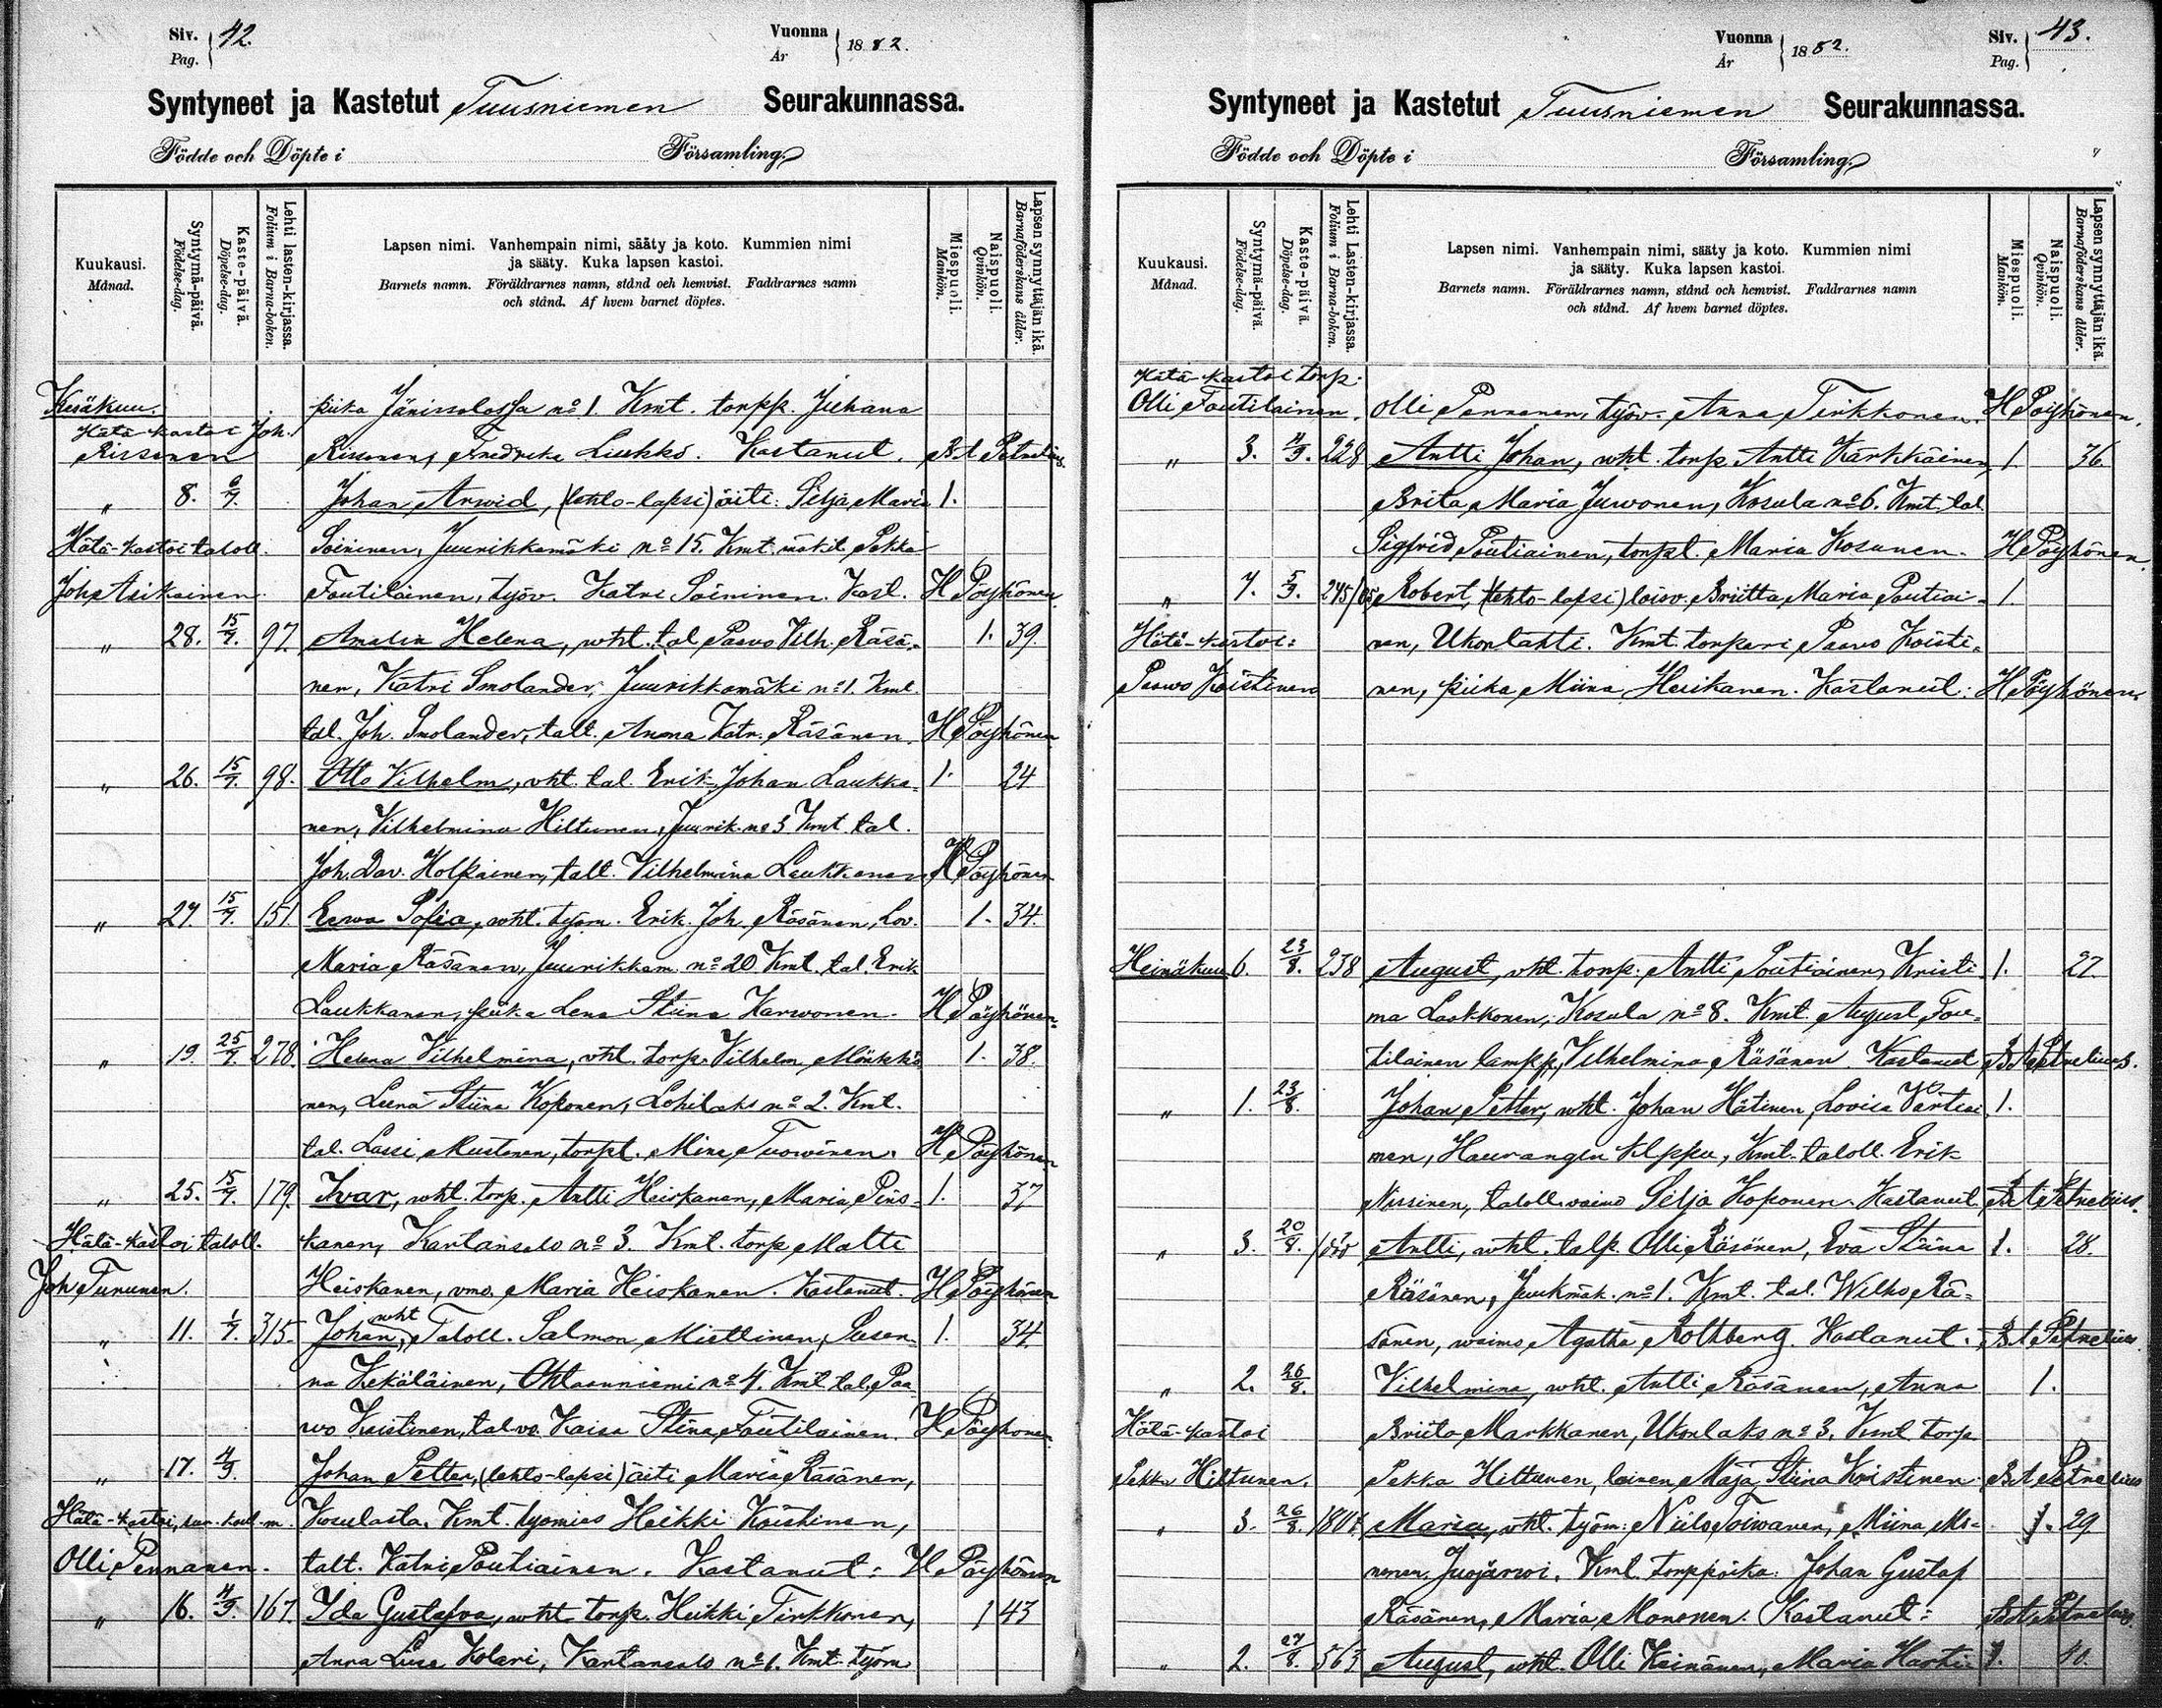 Siv. 42.
Pag.
Vuonna 1882.
År
Syntyneet ja Kastetut Tuusniemen Seurakunnassa.
Födde och Döpte i Församling.
Kuukausi. Månad.
Syntymä-päivä. Födelse-dag.
Kaste-päivä. Döpelse-dag.
Lehti lasten-kirjassa. Folium i Barna-boken.
Lapsen nimi. Vanhempain nimi, sääty ja koto. Kummien nimi
ja sääty. Kuka lapsen kastoi.
Barnets namn. Föräldrarnes namn, stånd och hemvist. Faddrarnes namn
och stånd. Af hvem barnet döptes.
Miespuoli. Mankön.
Naispuoli. Qvinkön.
Lapsen synnyttäjän ikä. Barnaföderskans ålder.
Kesäkuu. piika Jänissalossa no 1. Kmt. torpp. Juhana
Hätä-kastoi Joh.
Rissanen Rissanen, Fredrika Liukko. Kastanut. B A Petrelius
" 8. 6/7. Johan Arwid, (lehto-lapsi) äiti: Silja Maria 1.
Hätä-kastoi taloll. Soininen, Juurikkamäki no 15. Kmt. mäkit. Pekka
Joh. Asikainen. Toutilainen, työv. Katri Soininen. Kast. H Pöyhönen
" 28. 15/7. 97. Amalia Helena, wht. tal. Paavo Vilh. Räsä- 1. 39.
nen, Katri Smolander, Juurikkamäki no 1. Kmt.
tal. Joh. Smolander, talt. Anna Katr. Räsänen. H Pöyhönen
" 26. 15/7. 98. Otto Vilhelm, wht. tal. Erik Johan Laukka- 1. 24
nen, Vilhelmina Hiltunen, Juurik. no 3 Kmt. tal.
Joh. Dav. Holpainen, talt. Vilhelmina Laukkanen H Pöyhönen
" 27. 15/7. 151. Eewa Sofia, wht. työm. Erik Joh. Räsänen, Lov. 1. 34.
Maria Räsänen, Juurikkam. no 20 Kmt. tal. Erik
Laukkanen, piika Lena Stiina Karwonen. H Pöyhönen
" 19. 25/7. 278. Helena Vilhelmina, wht. torp. Vilhelm Mönkkö- 1. 38.
nen, Leena Stiina Koponen, Lohilaks no 2. Kmt.
tal. Lassi Mustonen, torpt. Mina Tuowinen. H Pöyhönen
" 25. 15/7. 179. Ivar, wht. torp. Antti Heiskanen, Maria Pius- 1. 37
Hätä-kastoi taloll. kanen, Kartansalo no 3. Kmt. torp. Matti
Joh. Tununen. Heiskanen, vmo. Maria Heiskanen. Kastanut. H Pöyhönen
wht
" 11. 1/7. 315. Johan, Taloll. Salmon Miettinen, Susan- 1. 34.
na Kekäläinen, Ohtaanniemi no 4. Kmt. tal. Paa-
wo Koistinen, tal. vo. Kaisa Stina Toutilainen. H Pöyhönen
" 17. 4/9. Johan Petter, (lehto-lapsi) äiti Maria Räsänen,
Hätä-kastoi, Kosulasta. Kmt. työmies Heikki Koistinen,
Olli Pennanen. talt. Katri Poutiainen. Kastanut: H Pöyhönen
" 16. 4/9. 167. Ida Gustafva, wht. torp. Heikki Tirkkonen, 1 43
Anna Liisa Kolari, Kartansalo no 1. Kmt. työm.
Vuonna 1882.
År
Siv. 43.
Pag.
Syntyneet ja Kastetut Tuusniemen Seurakunnassa.
Födde och Döpte i Församling.
Kuukausi. Månad.
Syntymä-päivä. Födelse-dag.
Kaste-päivä. Döpelse-dag.
Lehti Lasten-kirjassa. Folium i Barna-boken.
Lapsen nimi. Vanhempain nimi, sääty ja koto. Kummien nimi
ja sääty. Kuka lapsen kastoi.
Barnets namn. Föräldrarnes namn, stånd och hemvist. Faddrarnes namn
och stånd. Af hvem barnet döptes.
Miespuoli. Mankön.
Naispuoli. Qvinkön.
Lapsen synnyttäjän ikä. Barnaföderskans ålder.
Hätä-kastoi torp.
Olli Toutilainen. Olli Pennanen, työv. Anna Tirkkonen. H Pöyhönen.
" 3. 4/9. 228 Antti Johan, wht. torp. Antti Kärkkäinen, 1. 36.
Brita Maria Juwonen, Kosula no 6. Kmt. tal.
Sigfrid Poutiainen, torpt. Maria Kosunen. H Pöyhönen.
" 7. 5/9. 245/ Robert, (lehto-lapsi) loisv. Briitta Maria Poutiai- 1.
Hätä-kastoi: nen, Ukonlahti. Kmt. torpari Paavo Koisti-
Paawo Koistinen nen, piika Miina Heiskanen. Kastanut: H Pöyhönen
Heinäkuu 6. 23/8. 238 August, wht. torp. Antti Poutiainen, Kristi- 1. 27.
na Laakkonen, Kosula no 8. Kmt. August Tou-
tilainen lampp. Vilhelmina Räsänen. Kastanut B A Petrelius.
" 1. 23/8. Johan Petter, wht. Johan Hätinen, Lovisa Vartiai 1.
nen, Hauvangin Kuppu, Kmt. taloll. Erik
Nissinen, taloll. vaimo Silja Koponen. Kastanut B A Petrelius.
" 3. 20/8. Antti, wht. talp. Olli Räsänen, Eva Stiina 1. 28.
Räsänen, Juukmäk. no 1. Kmt. tal. Wilho Rä-
sänen, waimo Agatha Rothberg. Kastanut. B A Petrelius
" 2. 26/8. Vilhelmina, wht. Antti Räsänen, Anna 1.
Hätä-kastoi Briita Markkanen, Ukonlaks no 3. Kmt. torp.
Pekka Hiltunen. Pekka Hiltunen, loinen Maja Stiina Koistinen. B A Petrelius
" 3. 26/8. Maria, wht. työm. Niilo Toiwanen, Miina Mo- 1. 29
nonen, Juojärwi. Kmt. torppoika Johan Gustaf
Räsänen, Maria Mononen. Kastanut: B A Petrelius.
" 2. 27/8. 563 August, wht. Olli Keinänen, Maria Harti- 1. 40.